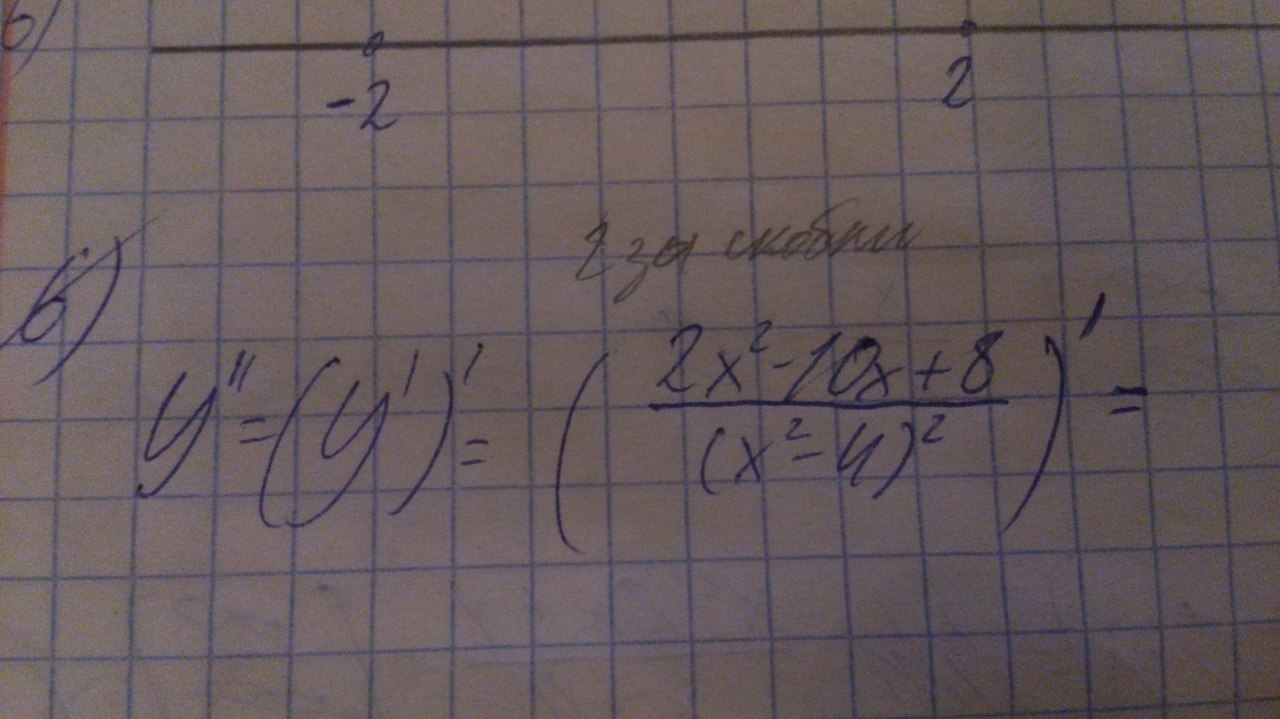 б)
-2 2
2 за скобки
в)
y'' = (y')' = ( (2x² - 10x + 8) / (x² - 4)² )' =